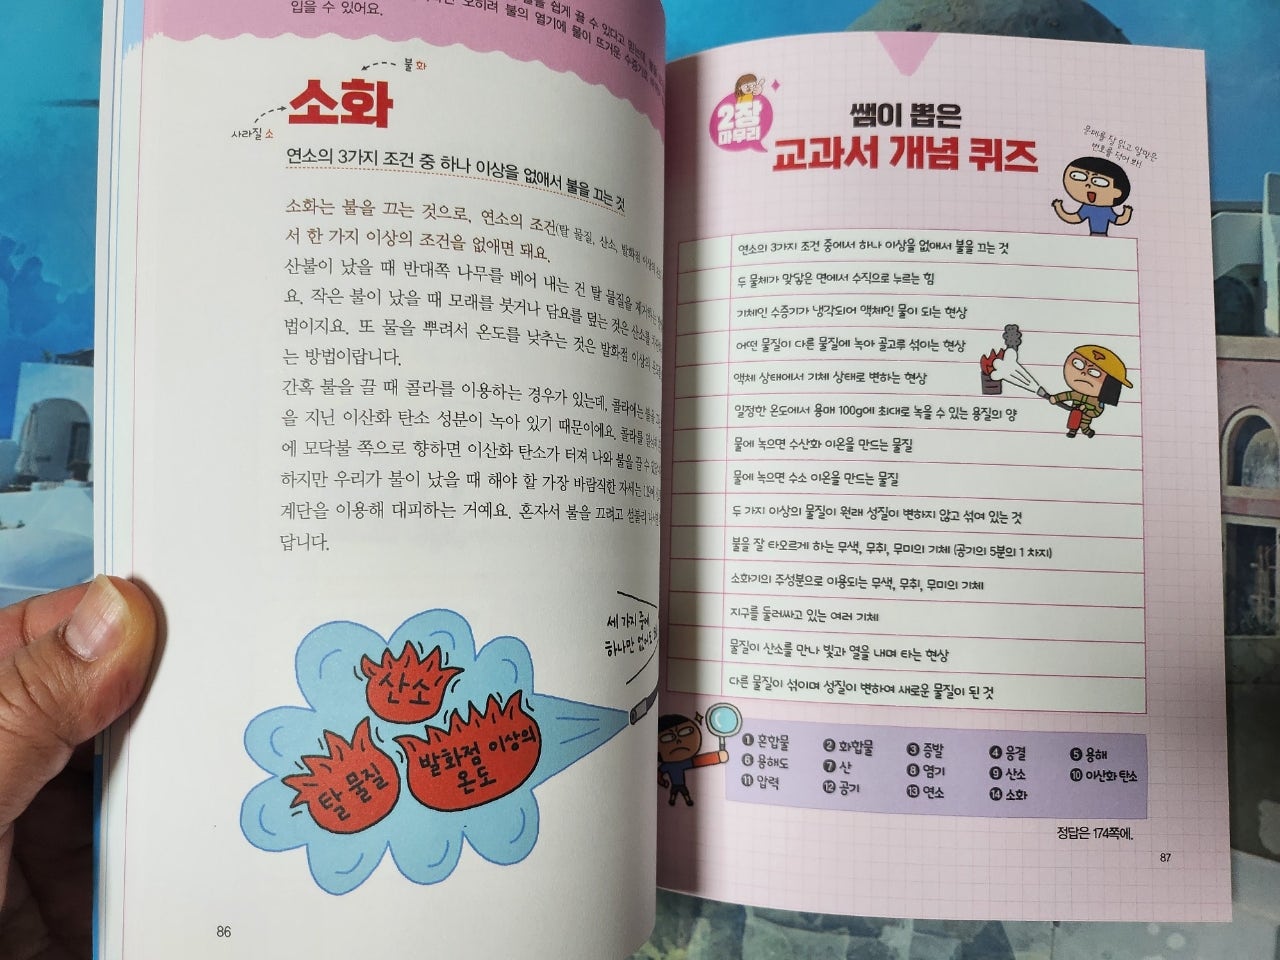 쉽게 끌 수 있다고
오히려 불의 열기에 물이 뜨거운
입을 수 있어요.
불 화
소화
사라질 소
연소의 3가지 조건 중 하나 이상을 없애서 불을 끄는 것
소화는 불을 끄는 것으로, 연소의 조건(탈 물질, 산소, 발화점 이상의
서 한 가지 이상의 조건을 없애면 돼요.
산불이 났을 때 반대쪽 나무를 베어 내는 건 탈 물질을
요. 작은 불이 났을 때 모래를 붓거나 담요를 덮는 것은 산소를
법이지요. 또 물을 뿌려서 온도를 낮추는 것은 발화점 이상의
는 방법이랍니다.
간혹 불을 끌 때 콜라를 이용하는 경우가 있는데, 콜라에는
을 지닌 이산화 탄소 성분이 녹아 있기 때문이에요. 콜라를
에 모닥불 쪽으로 향하면 이산화 탄소가 터져 나와 불을 끌 수
하지만 우리가 불이 났을 때 해야 할 가장 바람직한 자세는
계단을 이용해 대피하는 거예요. 혼자서 불을 끄려고 섣불리
답니다.
세 가지 중에
하나만 없어도
산소
발화점 이상의
온도
탈 물질
86
2장
마무리
쌤이 뽑은
교과서 개념 퀴즈
문제를 잘 읽고 알맞은
번호를 적어 봐!
연소의 3가지 조건 중에서 하나 이상을 없애서 불을 끄는 것
두 물체가 맞닿은 면에서 수직으로 누르는 힘
기체인 수증기가 냉각되어 액체인 물이 되는 현상
어떤 물질이 다른 물질에 녹아 골고루 섞이는 현상
액체 상태에서 기체 상태로 변하는 현상
일정한 온도에서 용매 100g에 최대로 녹을 수 있는 용질의 양
물에 녹으면 수산화 이온을 만드는 물질
물에 녹으면 수소 이온을 만드는 물질
두 가지 이상의 물질이 원래 성질이 변하지 않고 섞여 있는 것
불을 잘 타오르게 하는 무색, 무취, 무미의 기체 (공기의 5분의 1 차지)
소화기의 주성분으로 이용되는 무색, 무취, 무미의 기체
지구를 둘러싸고 있는 여러 기체
물질이 산소를 만나 빛과 열을 내며 타는 현상
다른 물질이 섞이며 성질이 변하여 새로운 물질이 된 것
❶ 혼합물 ❷ 화합물 ❸ 증발 ❹ 응결 ❺ 용해
❻ 용해도 ❼ 산 ❽ 염기 ❾ 산소 ❿ 이산화 탄소
⓫ 압력 ⓬ 공기 ⓭ 연소 ⓮ 소화
정답은 174쪽에.
87